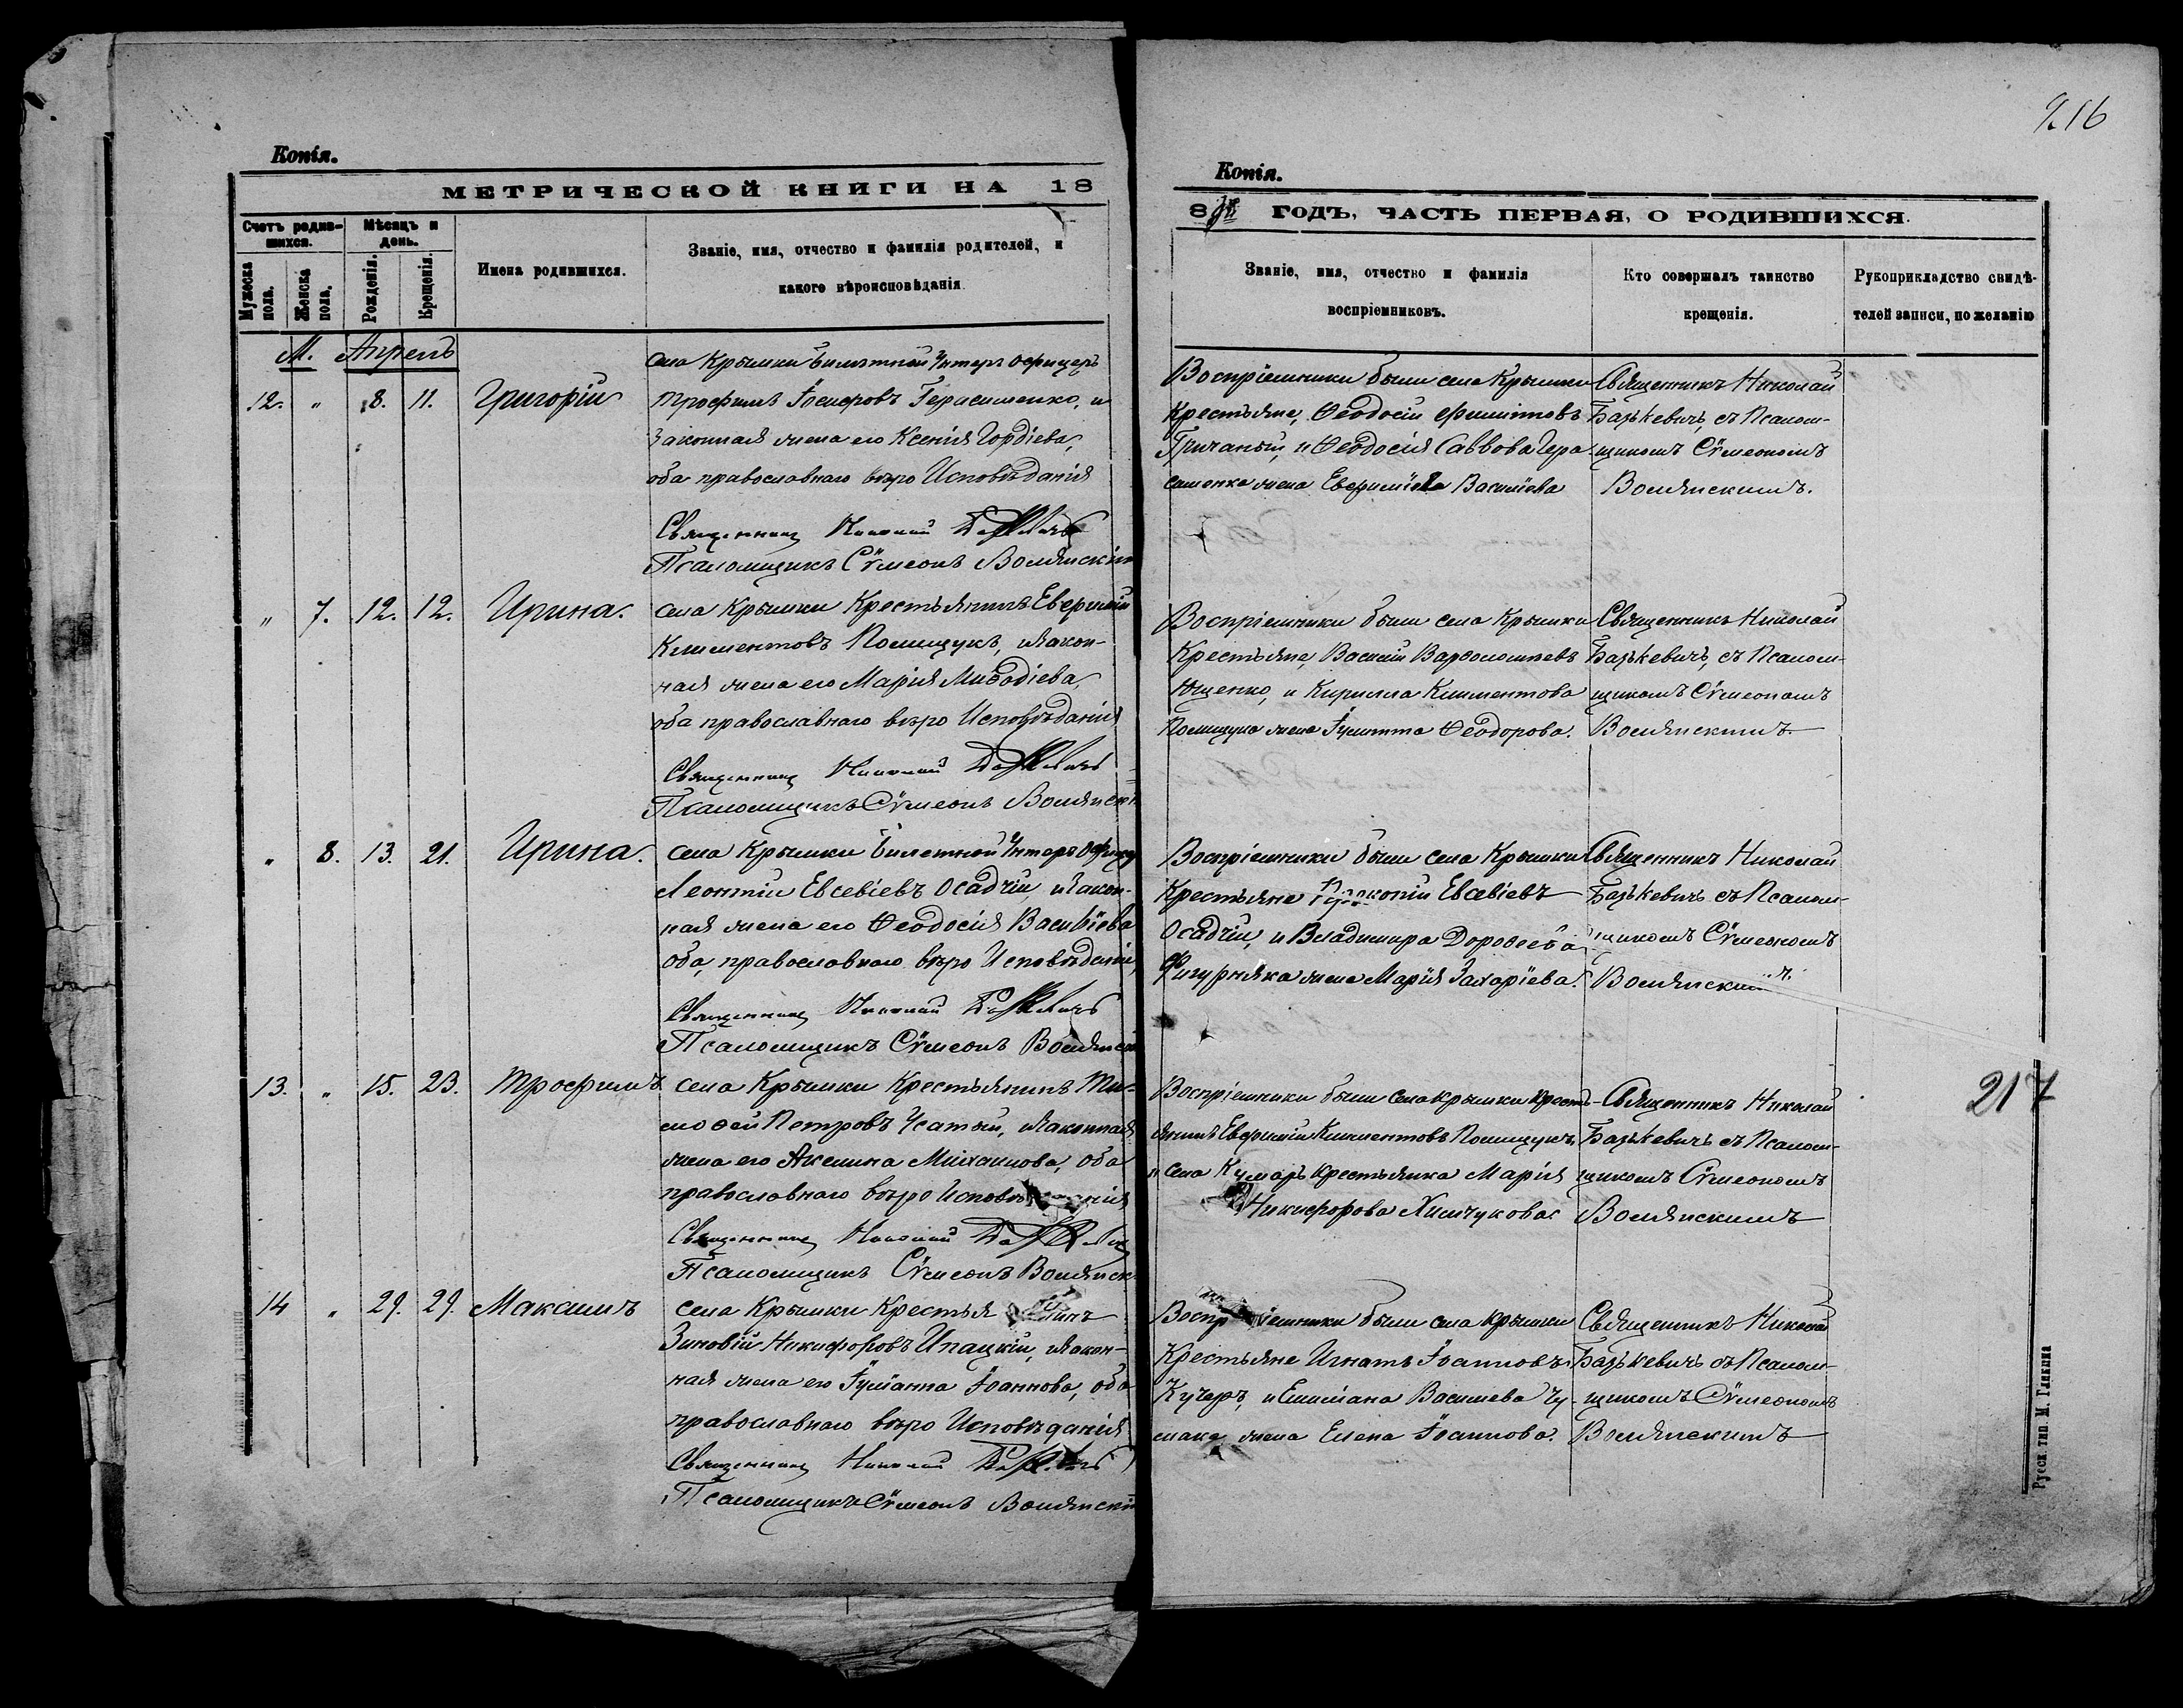 216
Копія.
МЕТРИЧЕСКОЙ КНИГИ НА 18
Счетъ родив-
шихся.
Мѣсяцъ и
день.
Мужеска
пола.
Женска
пола.
Рожденія.
Крещенія.
Имена родившихся.
Званіе, имя, отчество и фамилія родителей, и
какого вѣроисповѣданія
М. Апрель
12. " 8. 11. Григорій
села Крымки билетный Унтеръ Офицеръ
Трофимъ Іосифовъ Герасименко, и
законная жена его Ксенія Гордіева,
оба православнаго вѣро Исповѣданія
Священникъ Николай
Псаломщикъ Сѵмеонъ Волянскій
" 7. 12. 12. Ирина.
села Крымки Крестьянинъ Евфимій
Климентовъ Полищукъ, и закон-
ная жена его Марія Миѳодіева,
оба православнаго вѣро Исповѣданія
Священникъ Николай
Псаломщикъ Сѵмеонъ Волянскі
" 8. 13. 21. Ирина.
села Крымки билетный Унтеръ Офицеръ
Леонтій Евсевіевъ Осадчій, и закон-
ная жена его Ѳеодосія Василіева
оба, православнаго вѣро Исповѣданія,
Священникъ Николай
Псаломщикъ Сѵмеонъ Волянскій
13. " 15. 23. Трофимъ
села Крымки Крестьянинъ Ти-
моѳей Петровъ Усатый, и законная
жена его Акилина Михаилова, оба
православнаго вѣро Исповѣданія
Священникъ Николай
Псаломщикъ Сѵмеонъ Волянск
14 " 29. 29. Максимъ
села Крымки Крестьянинъ
Зиновій Никифоровъ Ипацкій, и закон-
ная жена его Іуліанна Іоаннова, оба
православнаго вѣро Исповѣданія
Священникъ Николай
Псаломщикъ Сѵмеонъ Волянскій
Копія.
8 ГОДЪ, ЧАСТЬ ПЕРВАЯ, О РОДИВШИХСЯ.
Званіе, имя, отчество и фамилія
воспріемниковъ.
Кто совершалъ таинство
крещенія.
Рукоприкладство свидѣ-
телей записи, по желанію
Воспріемники были села Крымки
Крестьяне, Ѳеодосій Филиповъ
Гричаный, и Ѳеодосія Саввова Гера
сименка жена Евфиміева Василіева
Священникъ Николай
Базкевичъ, съ Псалом-
щикомъ Сѵмеономъ
Волянскимъ.
Воспріемники были села Крымки
Крестьяне, Василій Варѳоломеевъ
Ющенко, и Кирилла Климентова
Полищука жена Іулитта Ѳеодорова.
Священникъ Николай
Базкевичъ, съ Псалом-
щикомъ Сѵмеономъ
Волянскимъ.
Воспріемники были села Крымки
Крестьяне Прокопій Евсевіевъ
Осадчій, и Владимира Дороѳеева
Фигурняка жена Марія Захаріева.
Священникъ Николай
Базкевичъ съ Псалом-
щикомъ Сѵмеономъ
Волянскимъ.
Воспріемники были села Крымки Кресть-
янинъ Евфимій Климентовъ Полищукъ,
и села Кумаръ Крестьянка Марія
Никифорова Химчукова
Священникъ Николай
Базкевичъ съ Псалом-
щикомъ Сѵмеономъ
Волянскимъ
217
Воспріемники были села Крымки
Крестьяне Игнатъ Іоанновъ
Кучеръ, и Емиліана Василева Чу-
мака жена Елена Іоаннова.
Священникъ Николай
Базкевичъ съ Псалом-
щикомъ Сѵмеономъ
Волянскимъ
Русск. тип. М. Гликмна